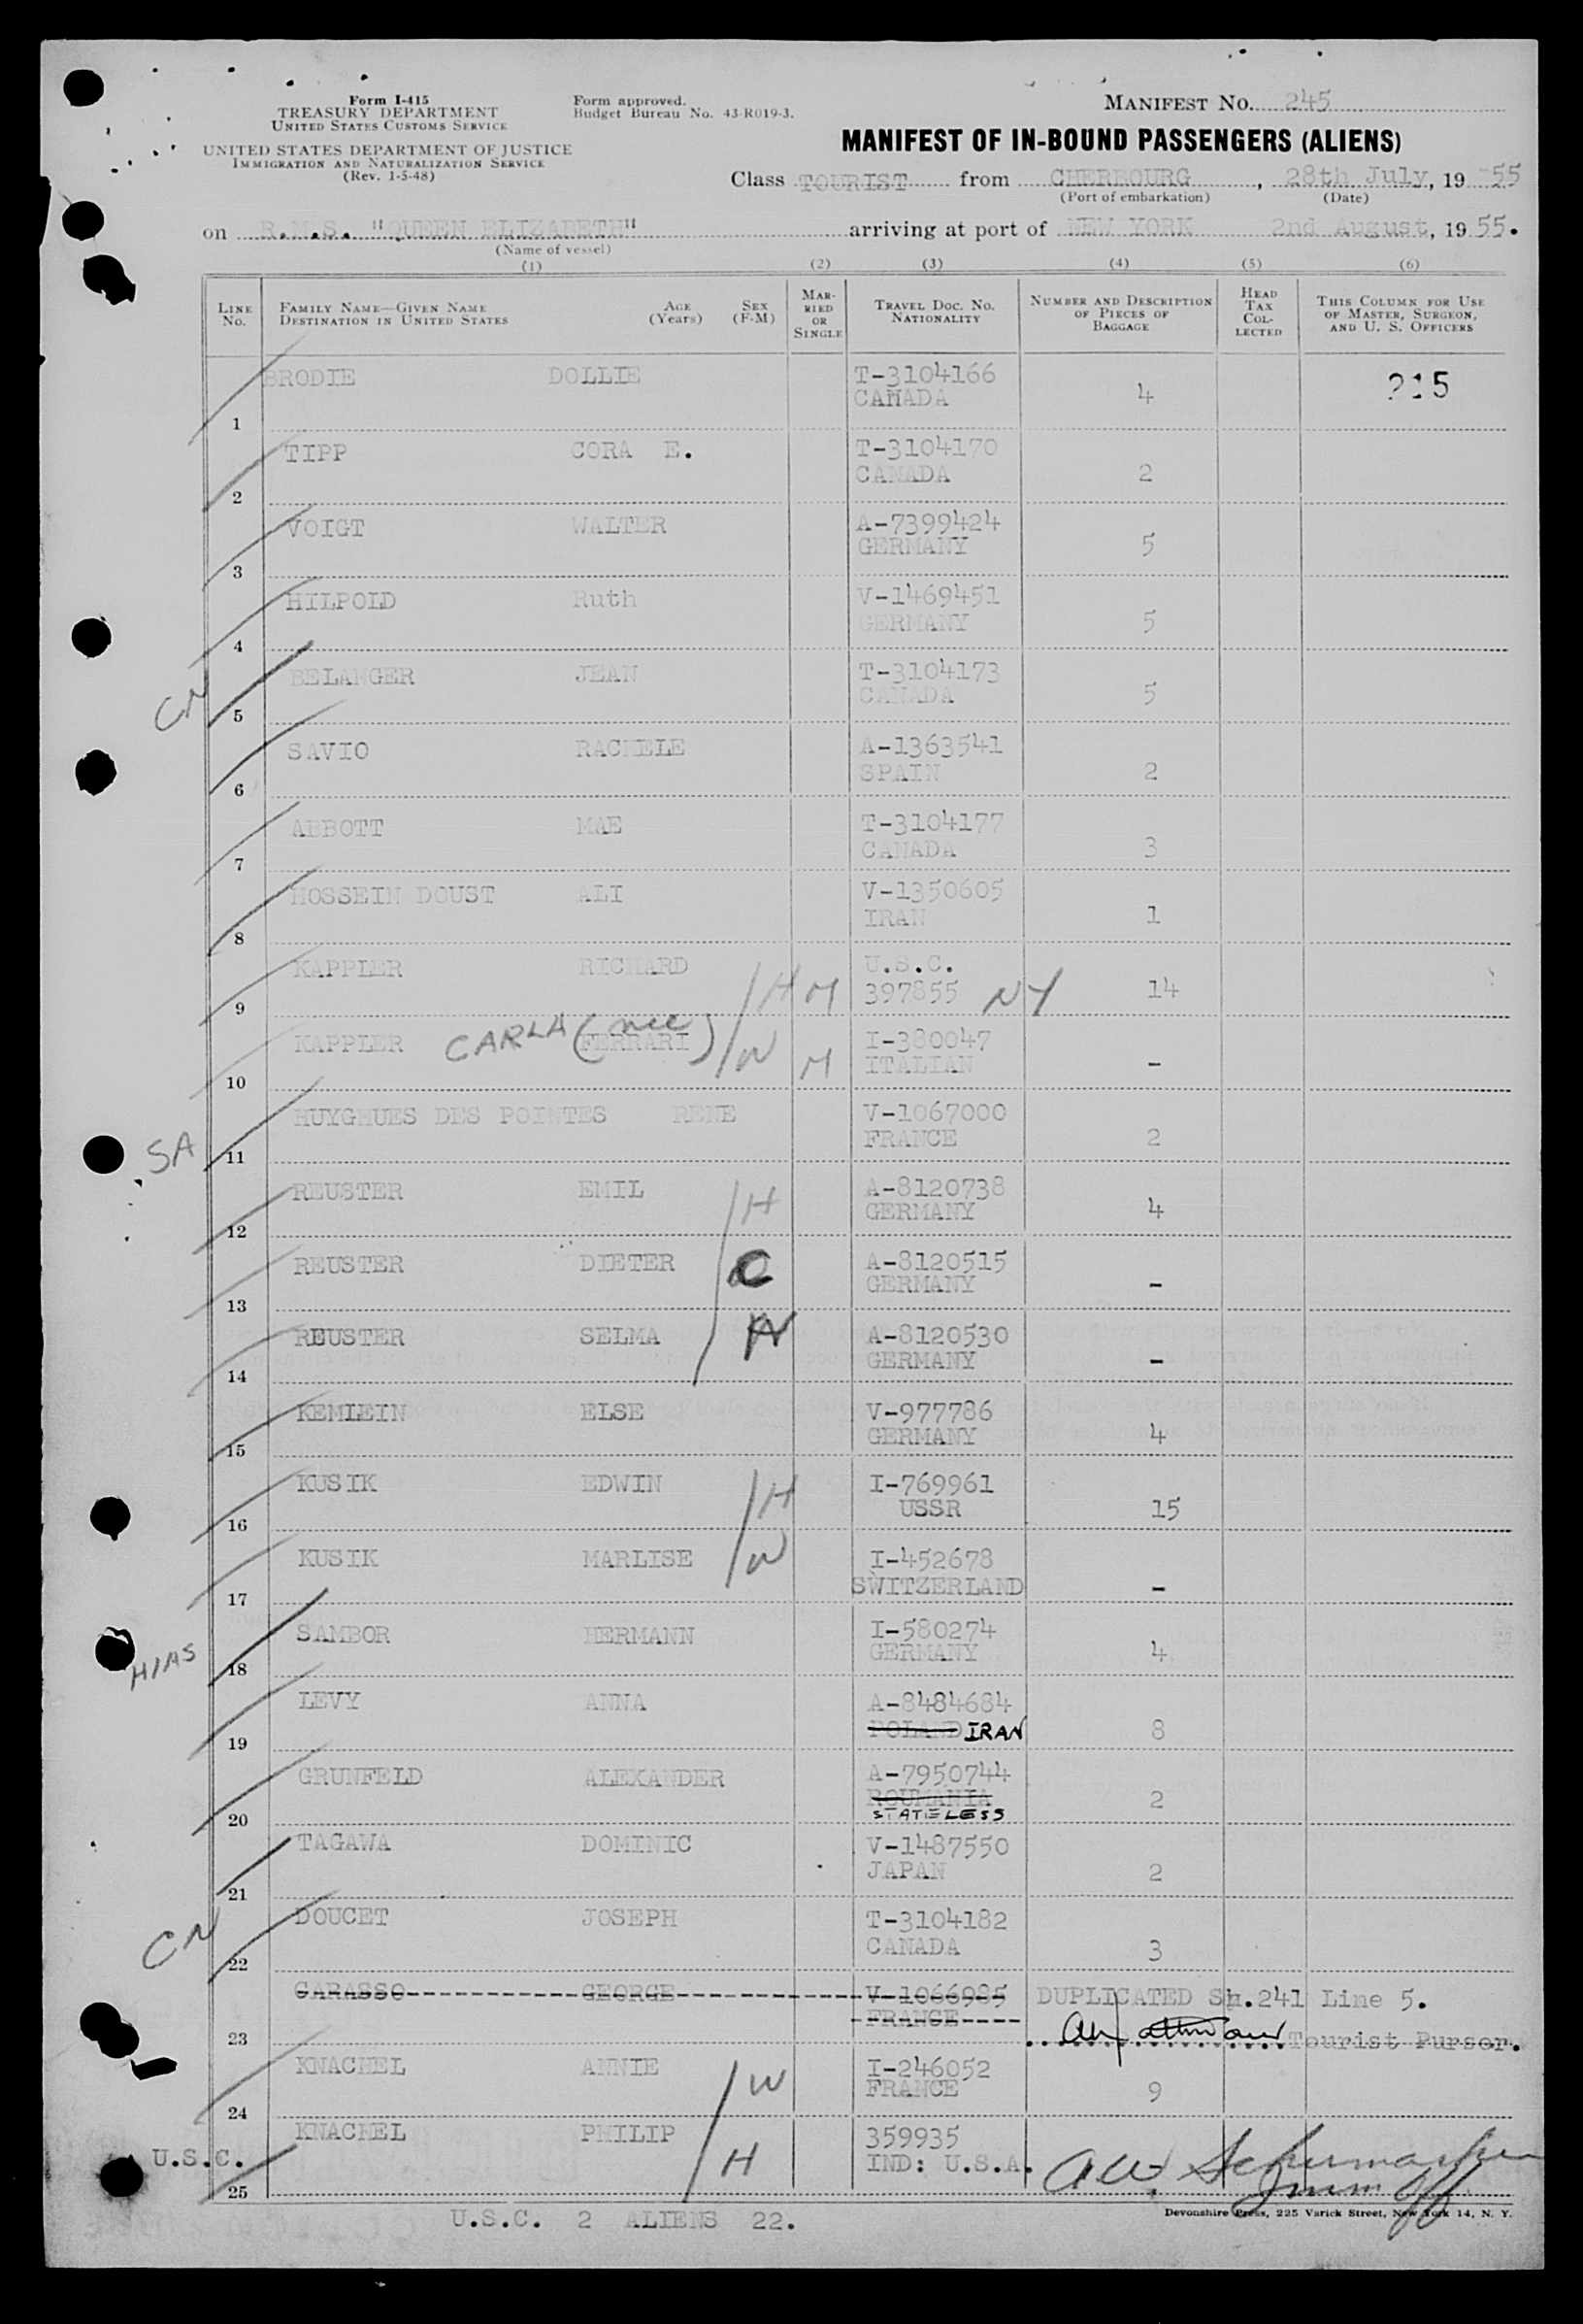 Form I-415
TREASURY DEPARTMENT
UNITED STATES CUSTOMS SERVICE
UNITED STATES DEPARTMENT OF JUSTICE
IMMIGRATION AND NATURALIZATION SERVICE
(Rev. 1-5-48)
Form approved.
Budget Bureau No. 43-R019-3.
MANIFEST NO. 245
MANIFEST OF IN-BOUND PASSENGERS (ALIENS)
Class TOURIST from CHERBOURG, 28th July, 19 55
(Port of embarkation) (Date)
on R.M.S. "QUEEN ELIZABETH" arriving at port of NEW YORK 2nd August, 19 55.
(Name of vessel)
(1) (2) (3) (4) (5) (6)
LINE No. FAMILY NAME—GIVEN NAME DESTINATION IN UNITED STATES AGE (Years) SEX (F-M) MARRIED OR SINGLE TRAVEL DOC. NO. NATIONALITY NUMBER AND DESCRIPTION OF PIECES OF BAGGAGE HEAD TAX COLLECTED THIS COLUMN FOR USE OF MASTER, SURGEON, AND U. S. OFFICERS
BRODIE DOLLIE T-3104166
CANADA 4 215
1
TIPP CORA E. T-3104170
CANADA 2
2
VOIGT WALTER A-7399424
GERMANY 5
3
HILPOLD Ruth V-1469451
GERMANY 5
4
CN
BELANGER JEAN T-3104173
CANADA 5
5
SAVIO RACHELE A-1363541
SPAIN 2
6
ABBOTT MAE T-3104177
CANADA 3
7
HOSSEIN DOUST ALI V-1350605
IRAN 1
8
KAPPLER RICHARD H M U.S.C.
397855 NY 14
9
KAPPLER CARLA (nee FERRARI) W M I-380047
ITALIAN -
10
HUYGHUES DES POINTES RENE V-1067000
FRANCE 2
SA 11
REUSTER EMIL H A-8120738
GERMANY 4
12
REUSTER DIETER C A-8120515
GERMANY -
13
REUSTER SELMA W A-8120530
GERMANY -
14
KEMLEIN ELSE V-977786
GERMANY 4
15
KUSIK EDWIN H I-769961
USSR 15
16
KUSIK MARLISE W I-452678
SWITZERLAND -
17
SAMBOR HERMANN I-580274
GERMANY 4
HIAS 18
LEVY ANNA A-8484684
POLAND IRAN 8
19
GRUNFELD ALEXANDER A-7950744
ROUMANIA 2
STATELESS
20
TAGAWA DOMINIC V-1487550
JAPAN 2
21
DOUCET JOSEPH T-3104182
CANADA 3
CN 22
GARASSO GEORGE V-1066985 DUPLICATED Sh.241 Line 5.
FRANCE
23 Tourist Purser.
KNACHEL ANNIE W I-246052
FRANCE 9
24
KNACHEL PHILIP H 359935
U.S.C. IND: U.S.A.
Imm Off
25
U.S.C. 2 ALIENS 22.
Devonshire Press, 225 Varick Street, New York 14, N. Y.